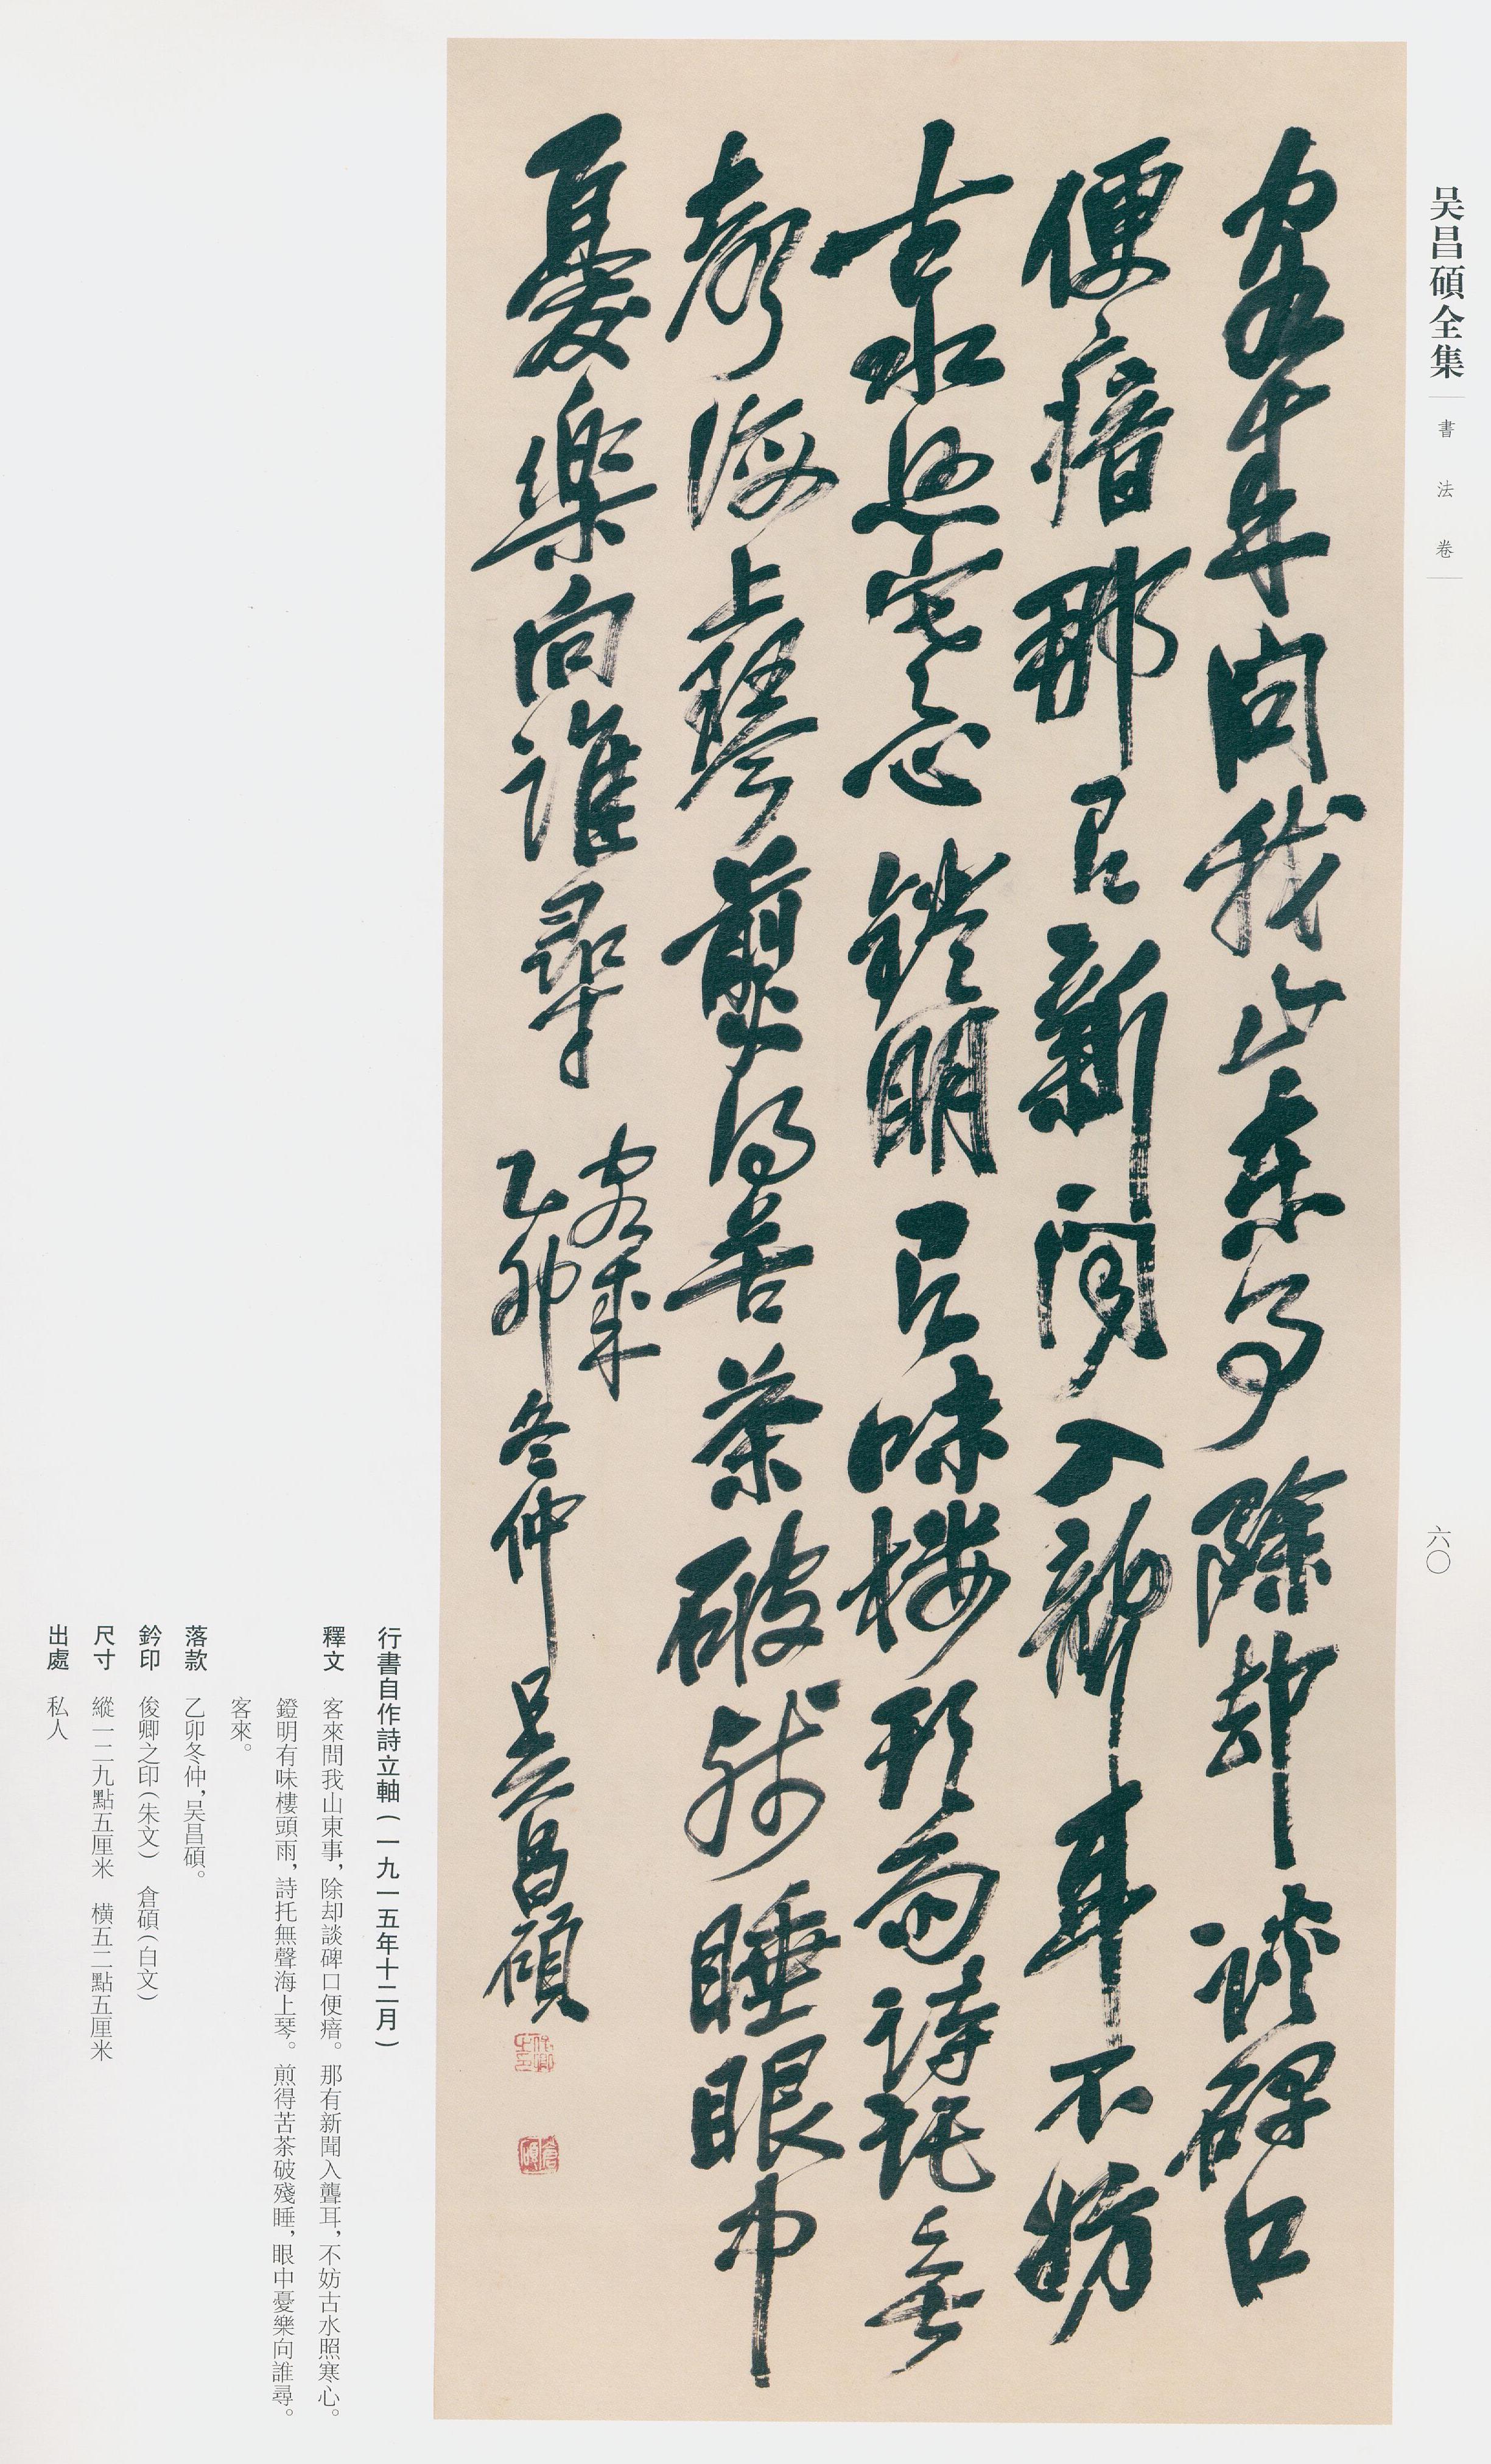 吴昌碩全集
書法卷
六〇
客來問我山東事除却談碑口
便瘖那有新聞入聾耳不妨
古水照寒心鐙明有味樓頭雨詩托無
聲海上琴煎得苦茶破殘睡眼中
憂樂向誰尋
客來
乙卯冬仲吴昌碩
俊卿之印
倉碩
行書自作詩立軸(一九一五年十二月)
釋文 客來問我山東事,除却談碑口便瘖。那有新聞入聾耳,不妨古水照寒心。
鐙明有味樓頭雨,詩托無聲海上琴。煎得苦茶破殘睡,眼中憂樂向誰尋。
客來。
落款 乙卯冬仲,吴昌碩。
鈐印 俊卿之印(朱文) 倉碩(白文)
尺寸 縱一二九點五厘米 橫五二點五厘米
出處 私人